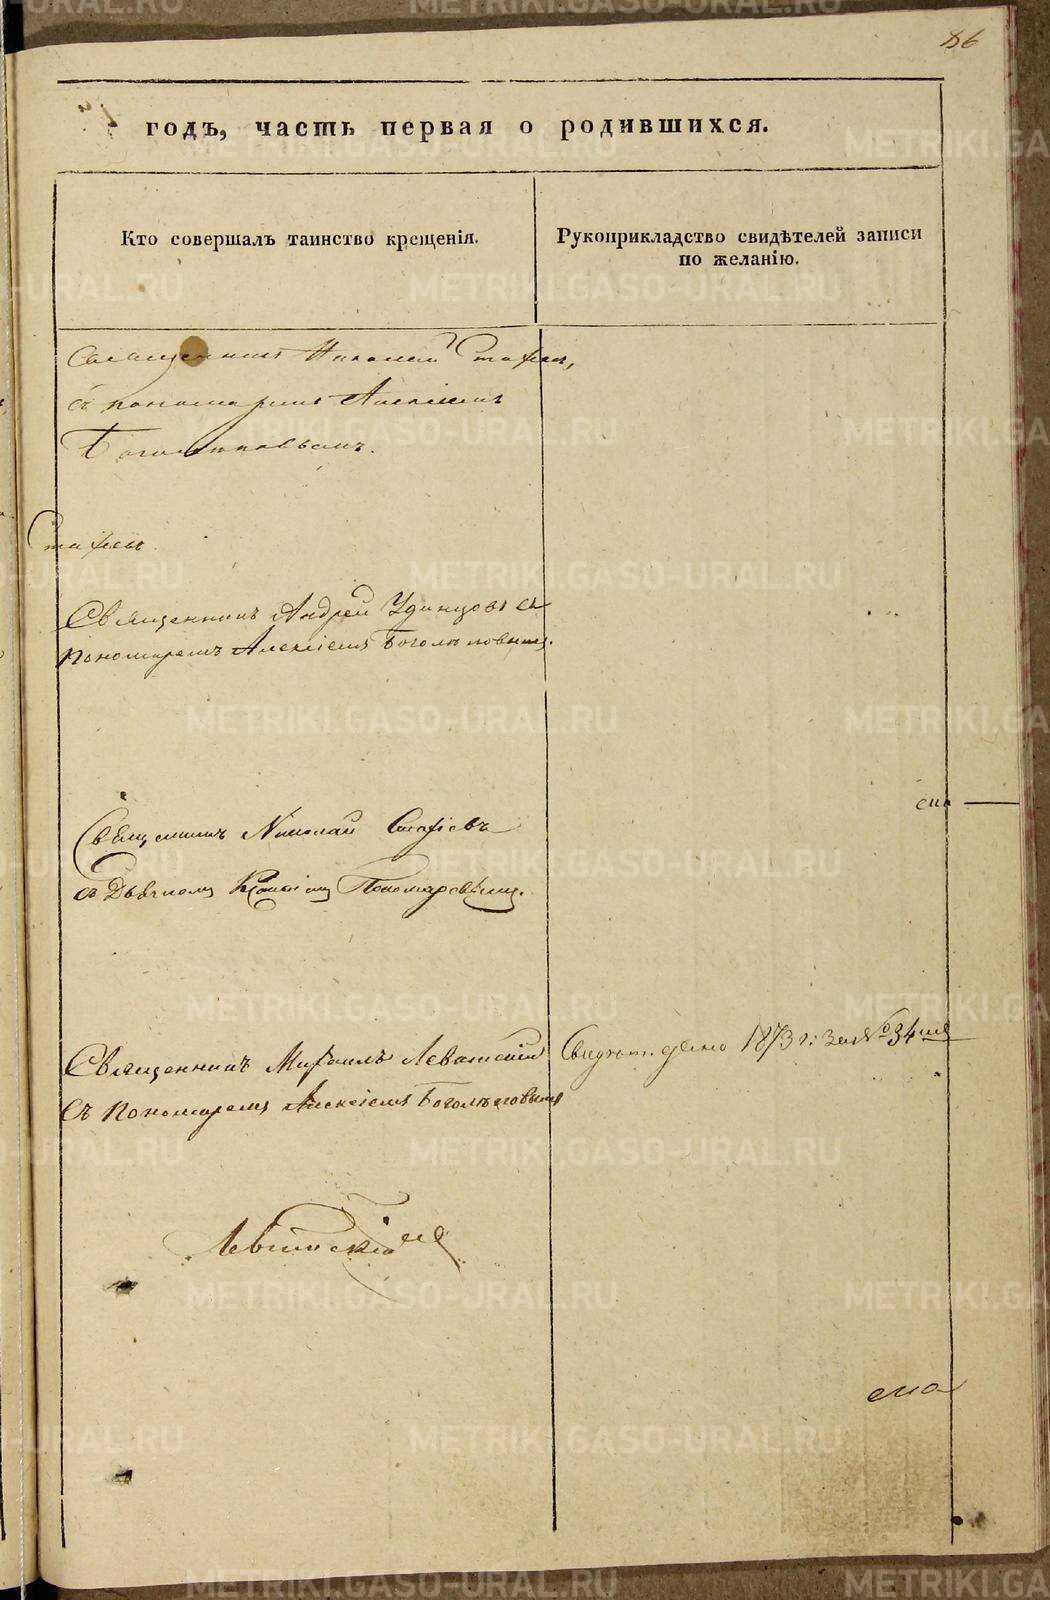 86
годъ, часть первая о родившихся.
Кто совершалъ таинство крещенія.
Рукоприкладство свидѣтелей записи
по желанію.
Священникъ Николай
съ пономаремъ Алексіемъ
Боголѣповымъ.
Священникъ Андрей Удинцовъ съ
пономаремъ Алексіемъ Боголѣповымъ.
Священникъ Николай
съ Дьячкомъ Пономаревымъ.
Священникъ Михаилъ Левитскій
съ пономаремъ Алексіемъ Боголѣповымъ
дано 1873 г. за № 34
Левитскій
METRIKI.GASO-URAL.RU